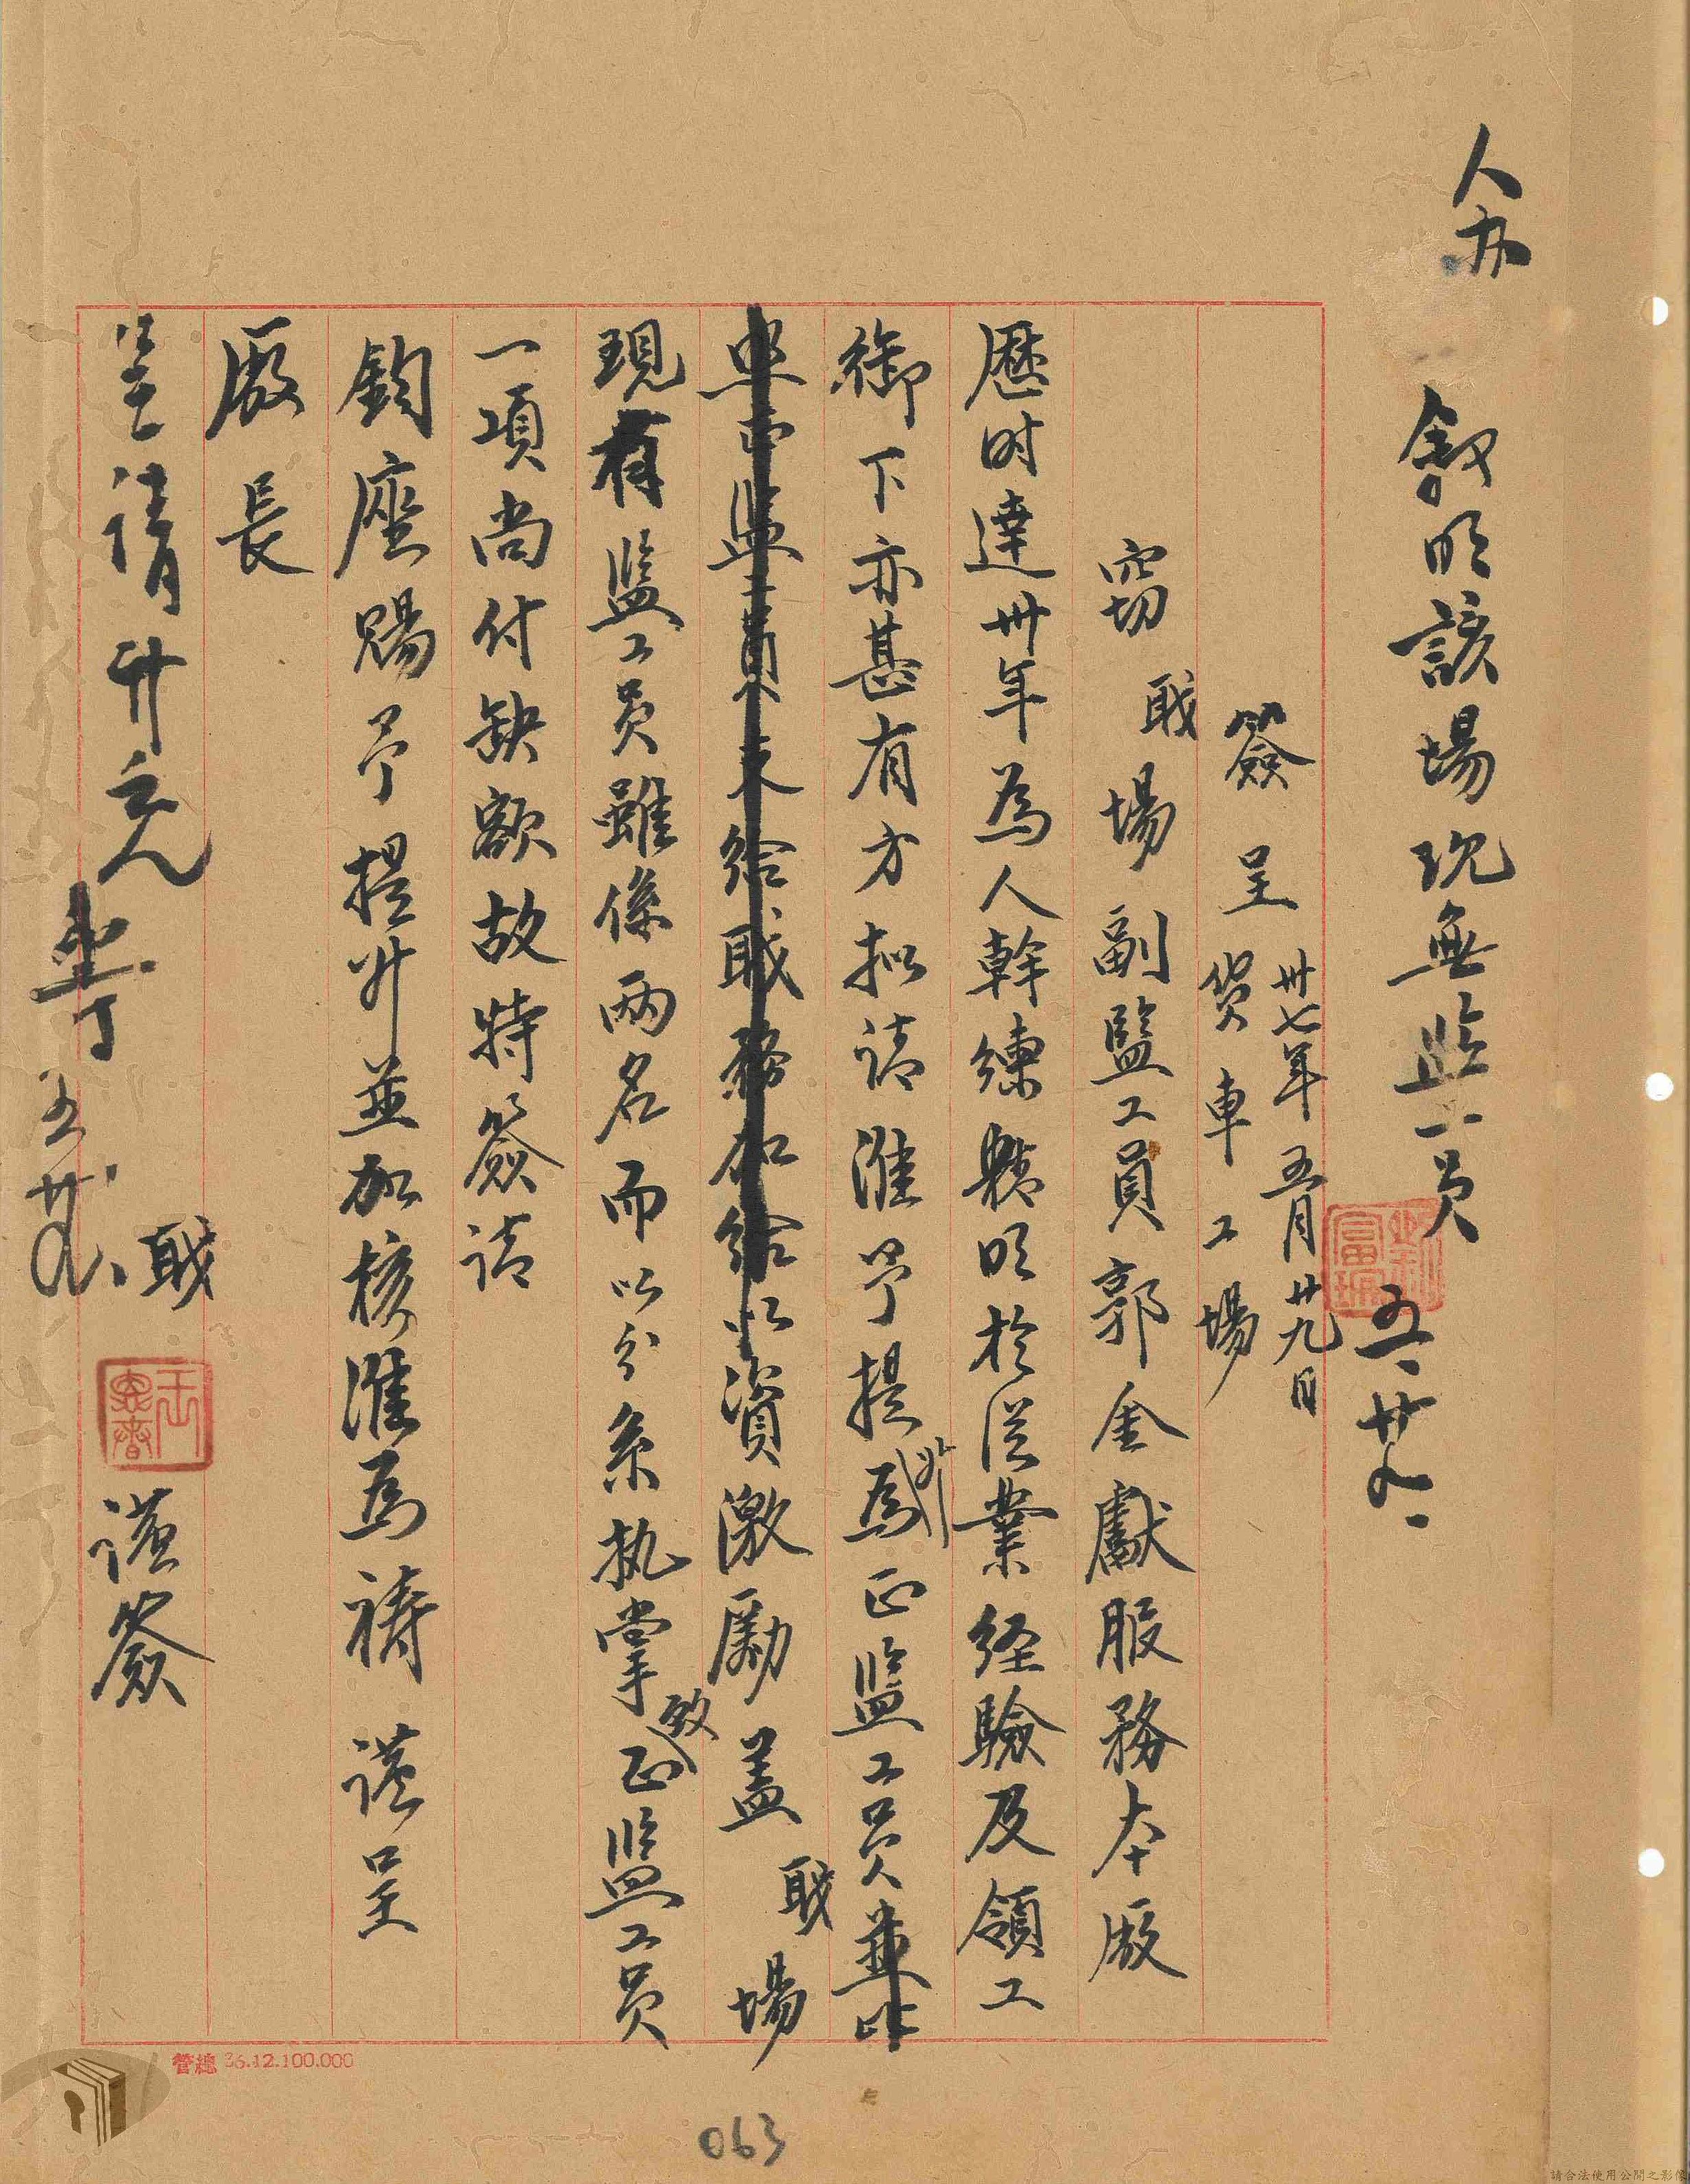 人办
敘明該場現無監工員 五、廿九、
簽呈 卅七年五月廿九日
貨車工場
竊職場副監工員郭金獻服務本廠
歷时達卅年為人幹練精明於從業経驗及領工
御下亦甚有方拟請准予提升為正监工员並比
照正监工員待遇支給職務加給以資激勵盖職場
現有监工员雖係兩名而以分系执掌致正监工员
一項尚付缺额故特簽請
鈞座赐予提升並加核准為禱 謹呈
廠長
職 謹簽
簽請升充
五廿九、
管總 36.12.100.000
063
請合法使用公開之影像